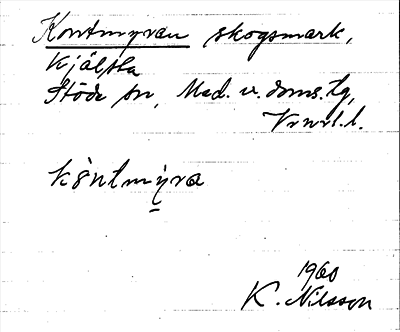 Kontmyran skogsmark,
Kjälsta
Stöde sn, Med. v. doms. tg,
Vnrl. l.
kòntmỳra
1960
K. Nilsson